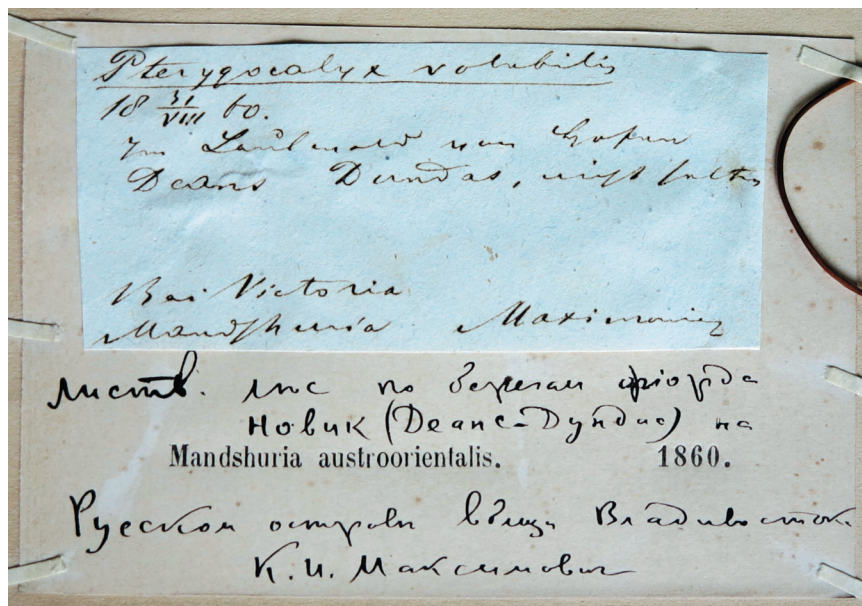 Pterygocalyx volubilis
18 31/VIII 60.
Im Laubwald von Hafen
Deans Dundas, nicht selten
Bai Victoria
Mandshuria Maximowicz
листв. лес по берегам фіорда
Новик (Deанс-Дундас) на
Mandshuria austroorientalis. 1860.
Русском острове близ Владивостока
К. И. Максимович